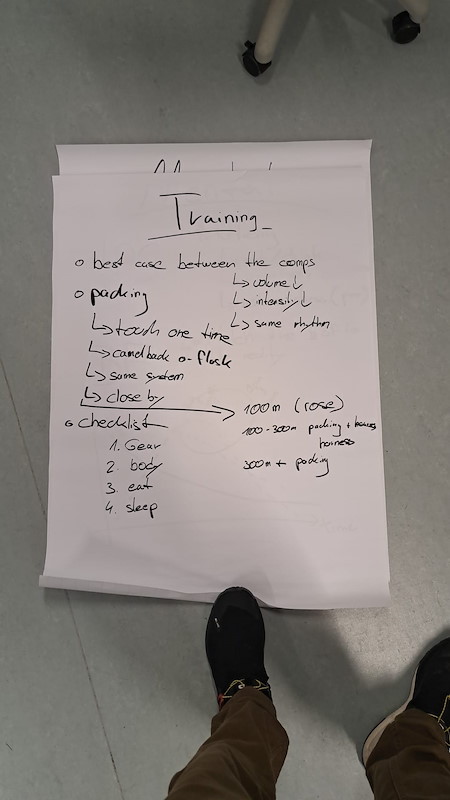 Training
o best case between the comps
↳ volume ↓
↳ intensity ↓
↳ same rhythm
o packing
↳ touch one time
↳ camelback o- flask
↳ same system
↳ close by
→ 100m (rose)
100-300m packing +
harness
300m + packing
o checklist
1. Gear
2. body
3. eat
4. sleep